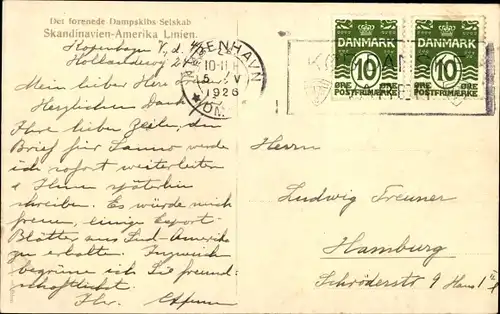 Det forenede Dampskibs-Selskab
Skandinavien-Amerika Linien.
Kopenhagen V, d.
24
Mein lieber Herr
Herzlichen Dank
Ihre lieben Zeilen, den
Brief für werde
ich sofort weiterleiten
& Ihnen späterhin
schreiben. Es würde mich
freuen, einige Export-
Blätter aus Süd-Amerika
zu erhalten. Inzwischen
begrüße ich Sie freund-
schaftlichst.
Ihr
KØBENHAVN
10-11
5 V
1926
OMK
DANMARK
10
ØRE ØRE
POSTFRIMÆRKE
DANMARK
10
ØRE ØRE
POSTFRIMÆRKE
Herrn
Ludwig Treuner
Hamburg
Schröderstr 9 Haus 1